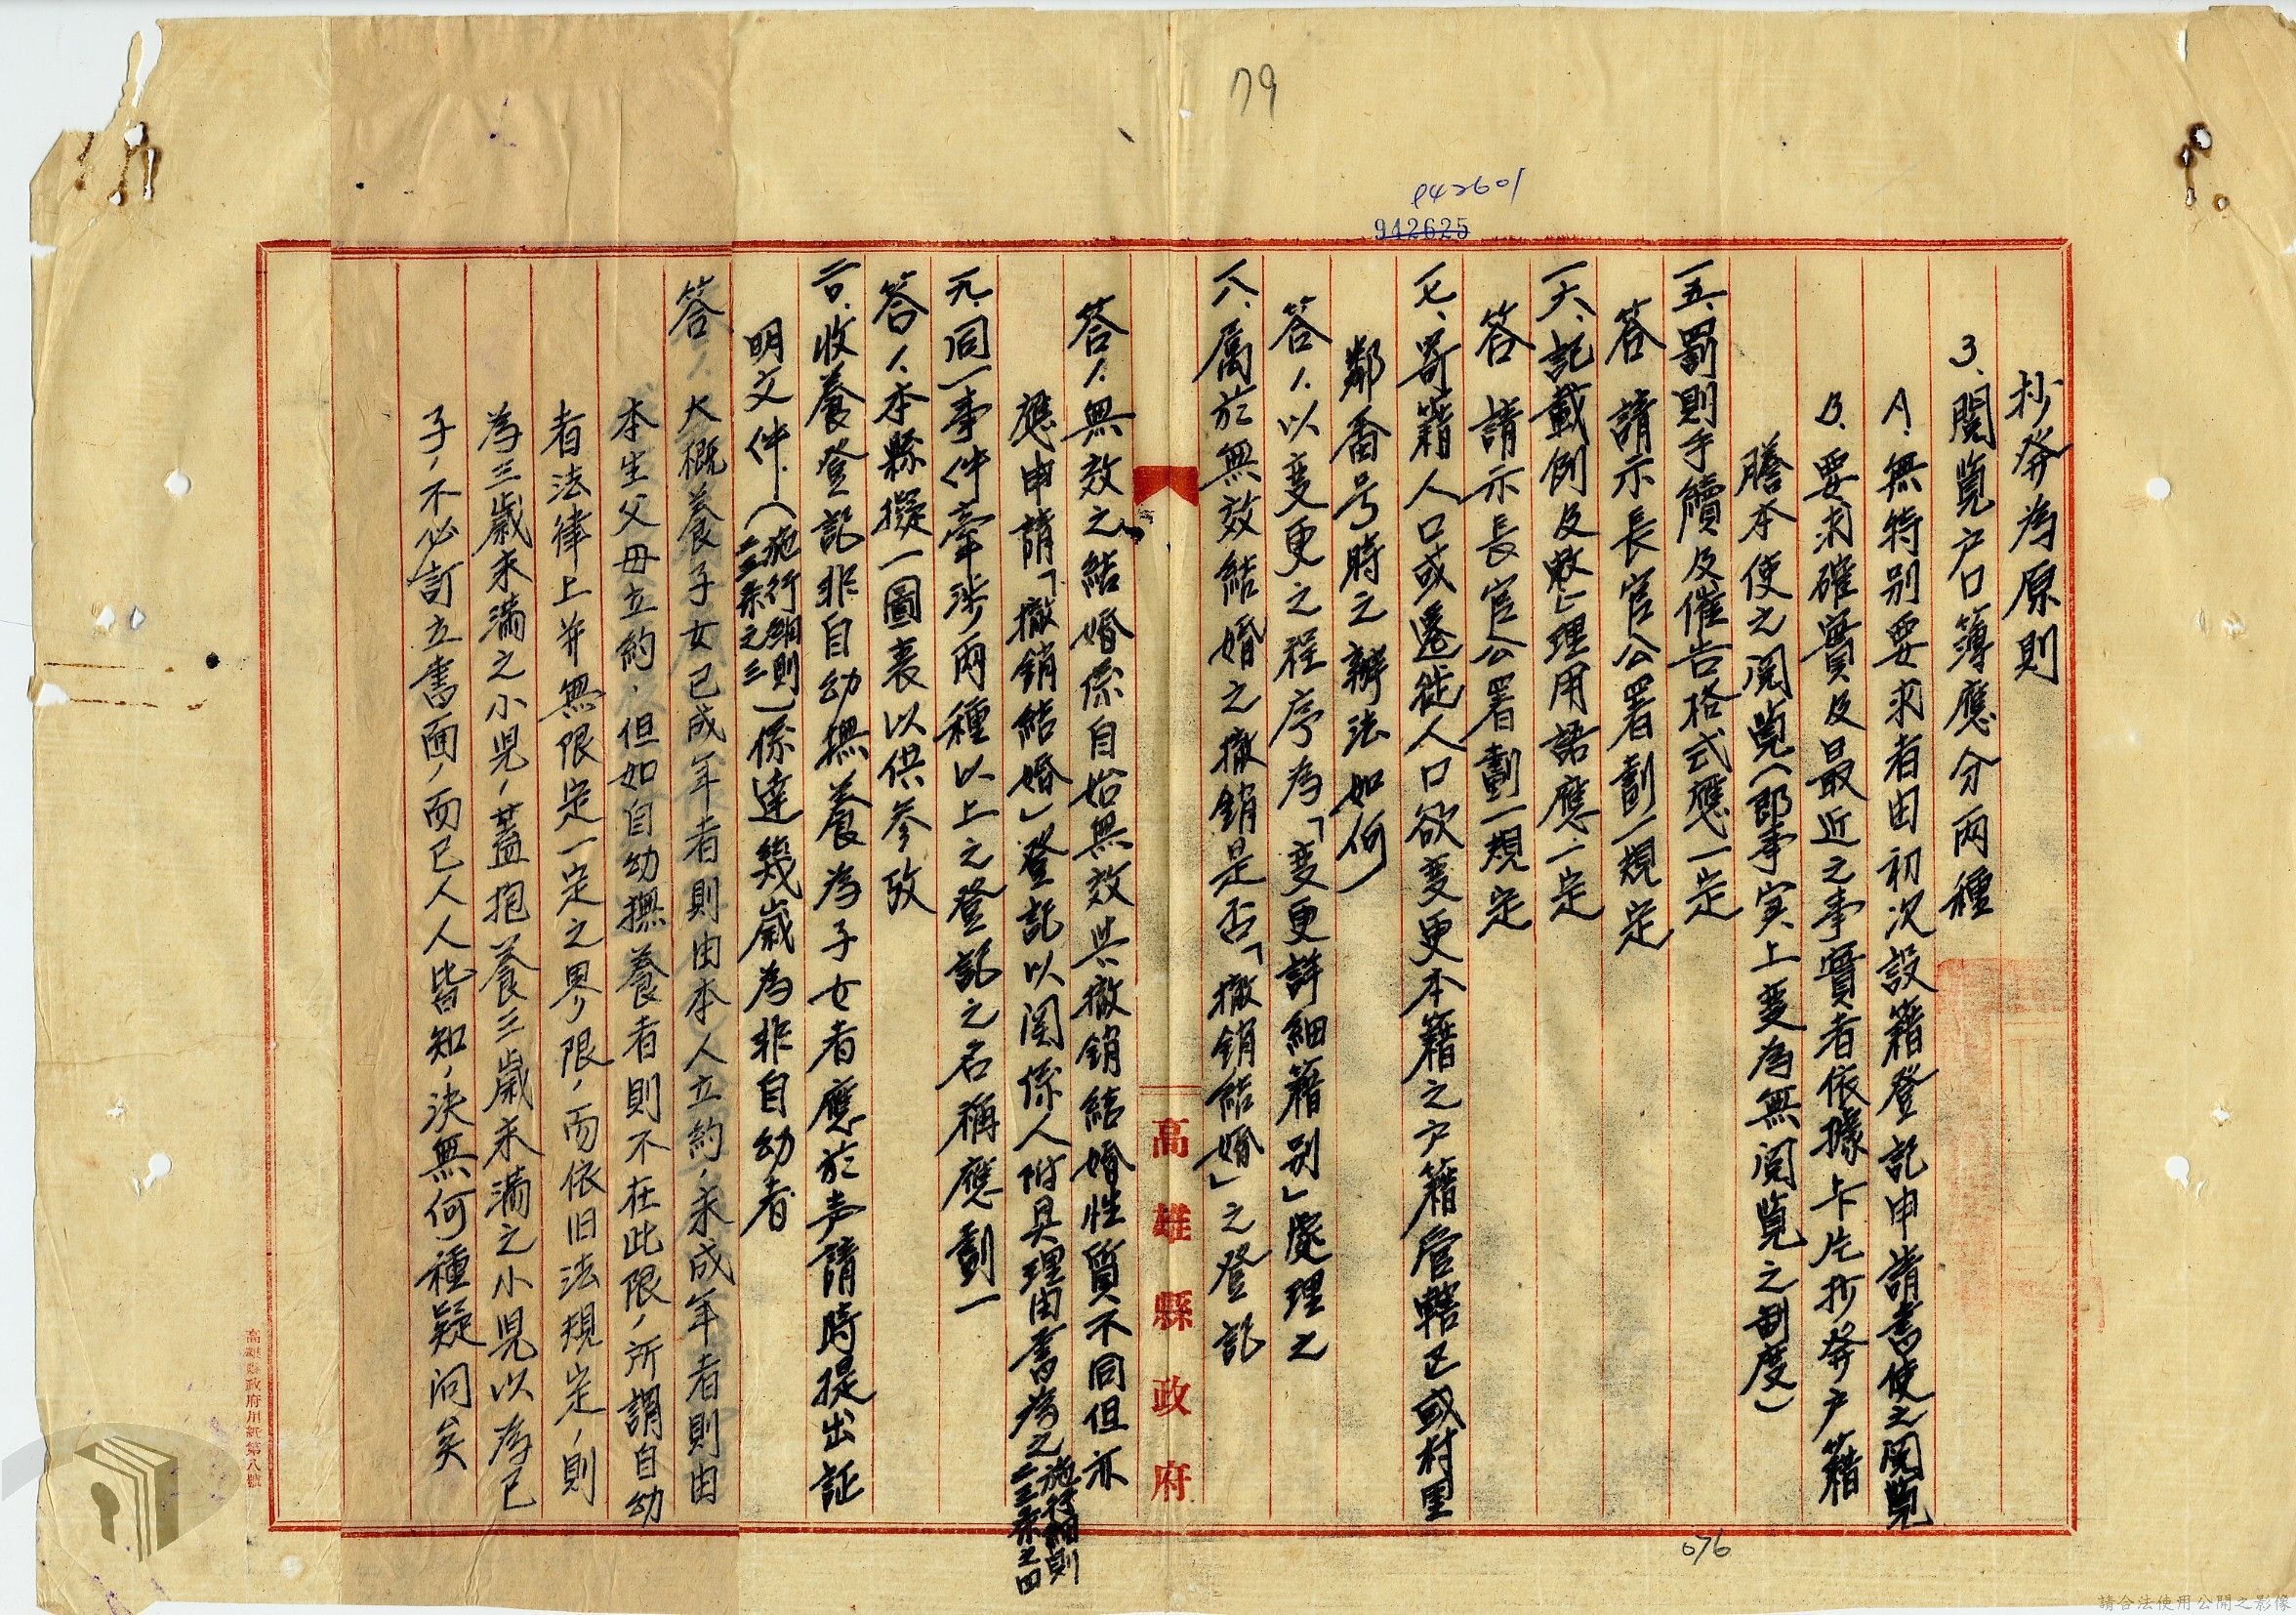 79
942601
942625
抄發為原則
3、閱覽户口簿應分兩種
A、無特別要求者由初次設籍登記申請書使之閱覽
B、要求確實及最近之事實者依據卡片抄發户籍
謄本使之閱覽(即事实上变為無閱覽之制度)
一五、罰則手續及催告格式應一定
答 請示長官公署劃一規定
一六、記載例及整理用語應一定
答 請示長官公署劃一規定
一七、寄籍人口或遷徙人口欲变更本籍之户籍管轄区或村里
鄰番号時之辦法如何
答1、以变更之程序為「变更詳細籍别」處理之
一八、属於無效結婚之撤銷是否「撤銷結婚」之登記
高雄縣政府
答1、無效之結婚係自始無效與撤銷結婚性質不同但亦
應申請「撤銷結婚」登記以関係人附具理由書為之
施行細則
二三条之四
一九、同一事件牽涉兩種以上之登記之名稱應劃一
答1、本縣擬一圖表以供参攷
二〇、收養登記非自幼撫養為子女者應於声請時提出証
明文件、(施行細則
二五条之三)係達幾歲為非自幼者
答1、大概養子女已成年者則由本人立約,未成年者則由
本生父母立約,但如自幼撫養者則不在此限,所謂自幼
者法律上并無限定一定之界限,而依旧法規定,則
為三歲未满之小児,蓋抱養三歲未满之小児以為己
子,不必訂立書面,而已人人皆知,決無何種疑问矣
高雄縣政府用紙第八號
676
請合法使用公開之影像